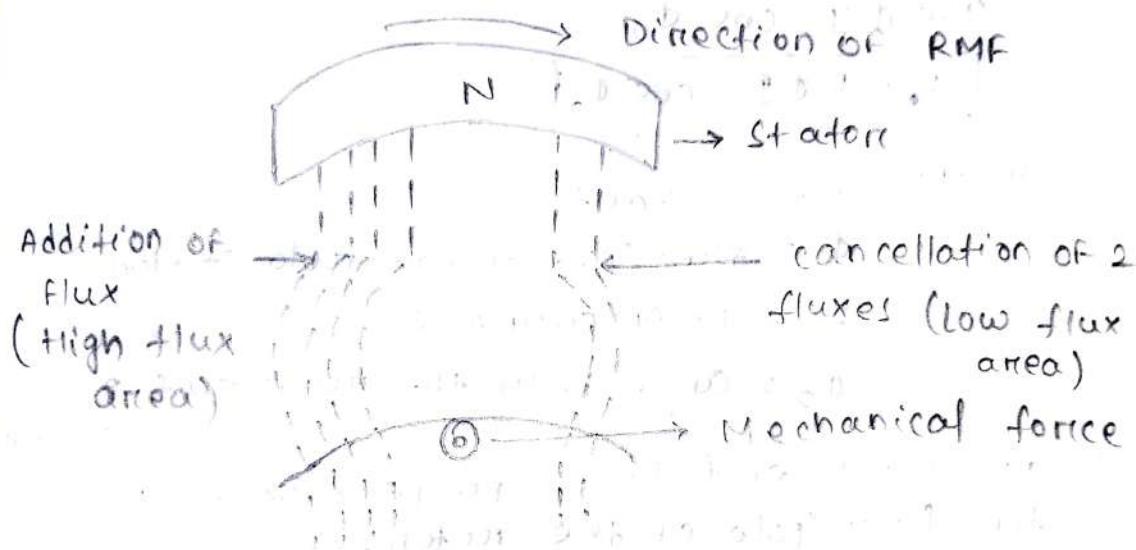 Direction of RMF
N
→ Stator
Addition of
flux
(High flux
area)
cancellation of 2
fluxes (Low flux
area)
Mechanical force